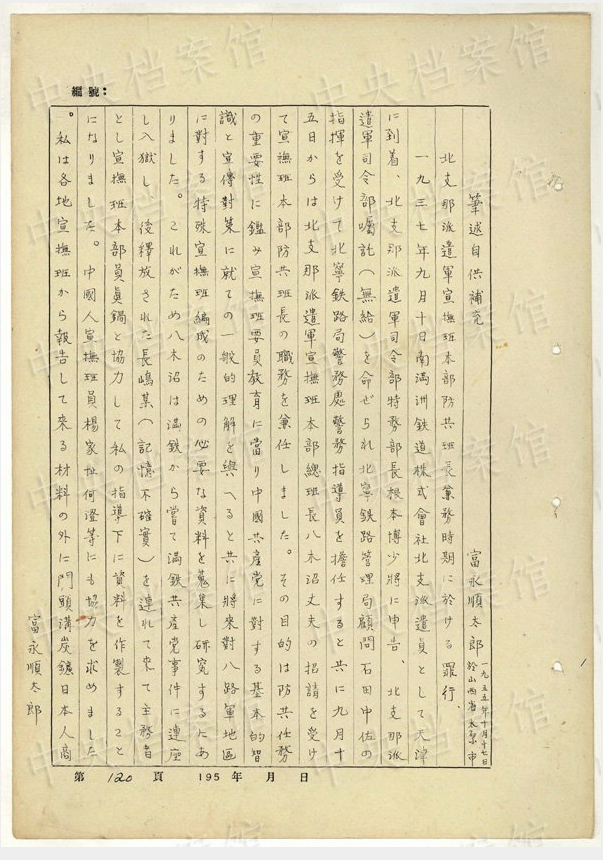 編號：
筆述自供補充
富永順太郎 一九五五年十月十七日
於山西省太原市
北支那派遣軍宣撫班本部防共班長兼務時期に於ける罪行、
一九三七年九月十日南満洲鉄道株式會社北支派遣員として天津
に到着、北支那派遣軍司令部特務部長根本博少將に申告、北支那派
遣軍司令部嘱託(無給)を命ぜられ北寧鉄路管理局顧問石田中佐の
指揮を受けて北寧鉄路局警務處警務指導員を擔任すると共に九月十
五日からは北支那派遣軍宣撫班本部總班長八木沼丈夫の招請を受け
て宣撫班本部防共班長の職務を兼任しました。その目的は防共任務
の重要性に鑑み宣撫班要員教育に當り中國共産党に対する基本的智
識と宣傳対策に就ての一般的理解を與へると共に將来對八路軍地區
に對する特殊宣撫班編成のための必要な資料を蒐集し研究するにあ
りました。これがため八木沼は満鉄から嘗て満鉄共産党事件に連座
し入獄し、後釈放された長嶋某(記憶不確實)を連れて来て主務者
とし宣撫班本部員眞鍋と協力して私の指導下に資料を作製すること
になりました。中國人宣撫班員楊家祉何澄等にも協力を求めました
。私は各地宣撫班から報告して来る材料の外に門頭溝炭鑛日本人商
富永順太郎
第 120 頁 195 年 月 日
中央档案馆